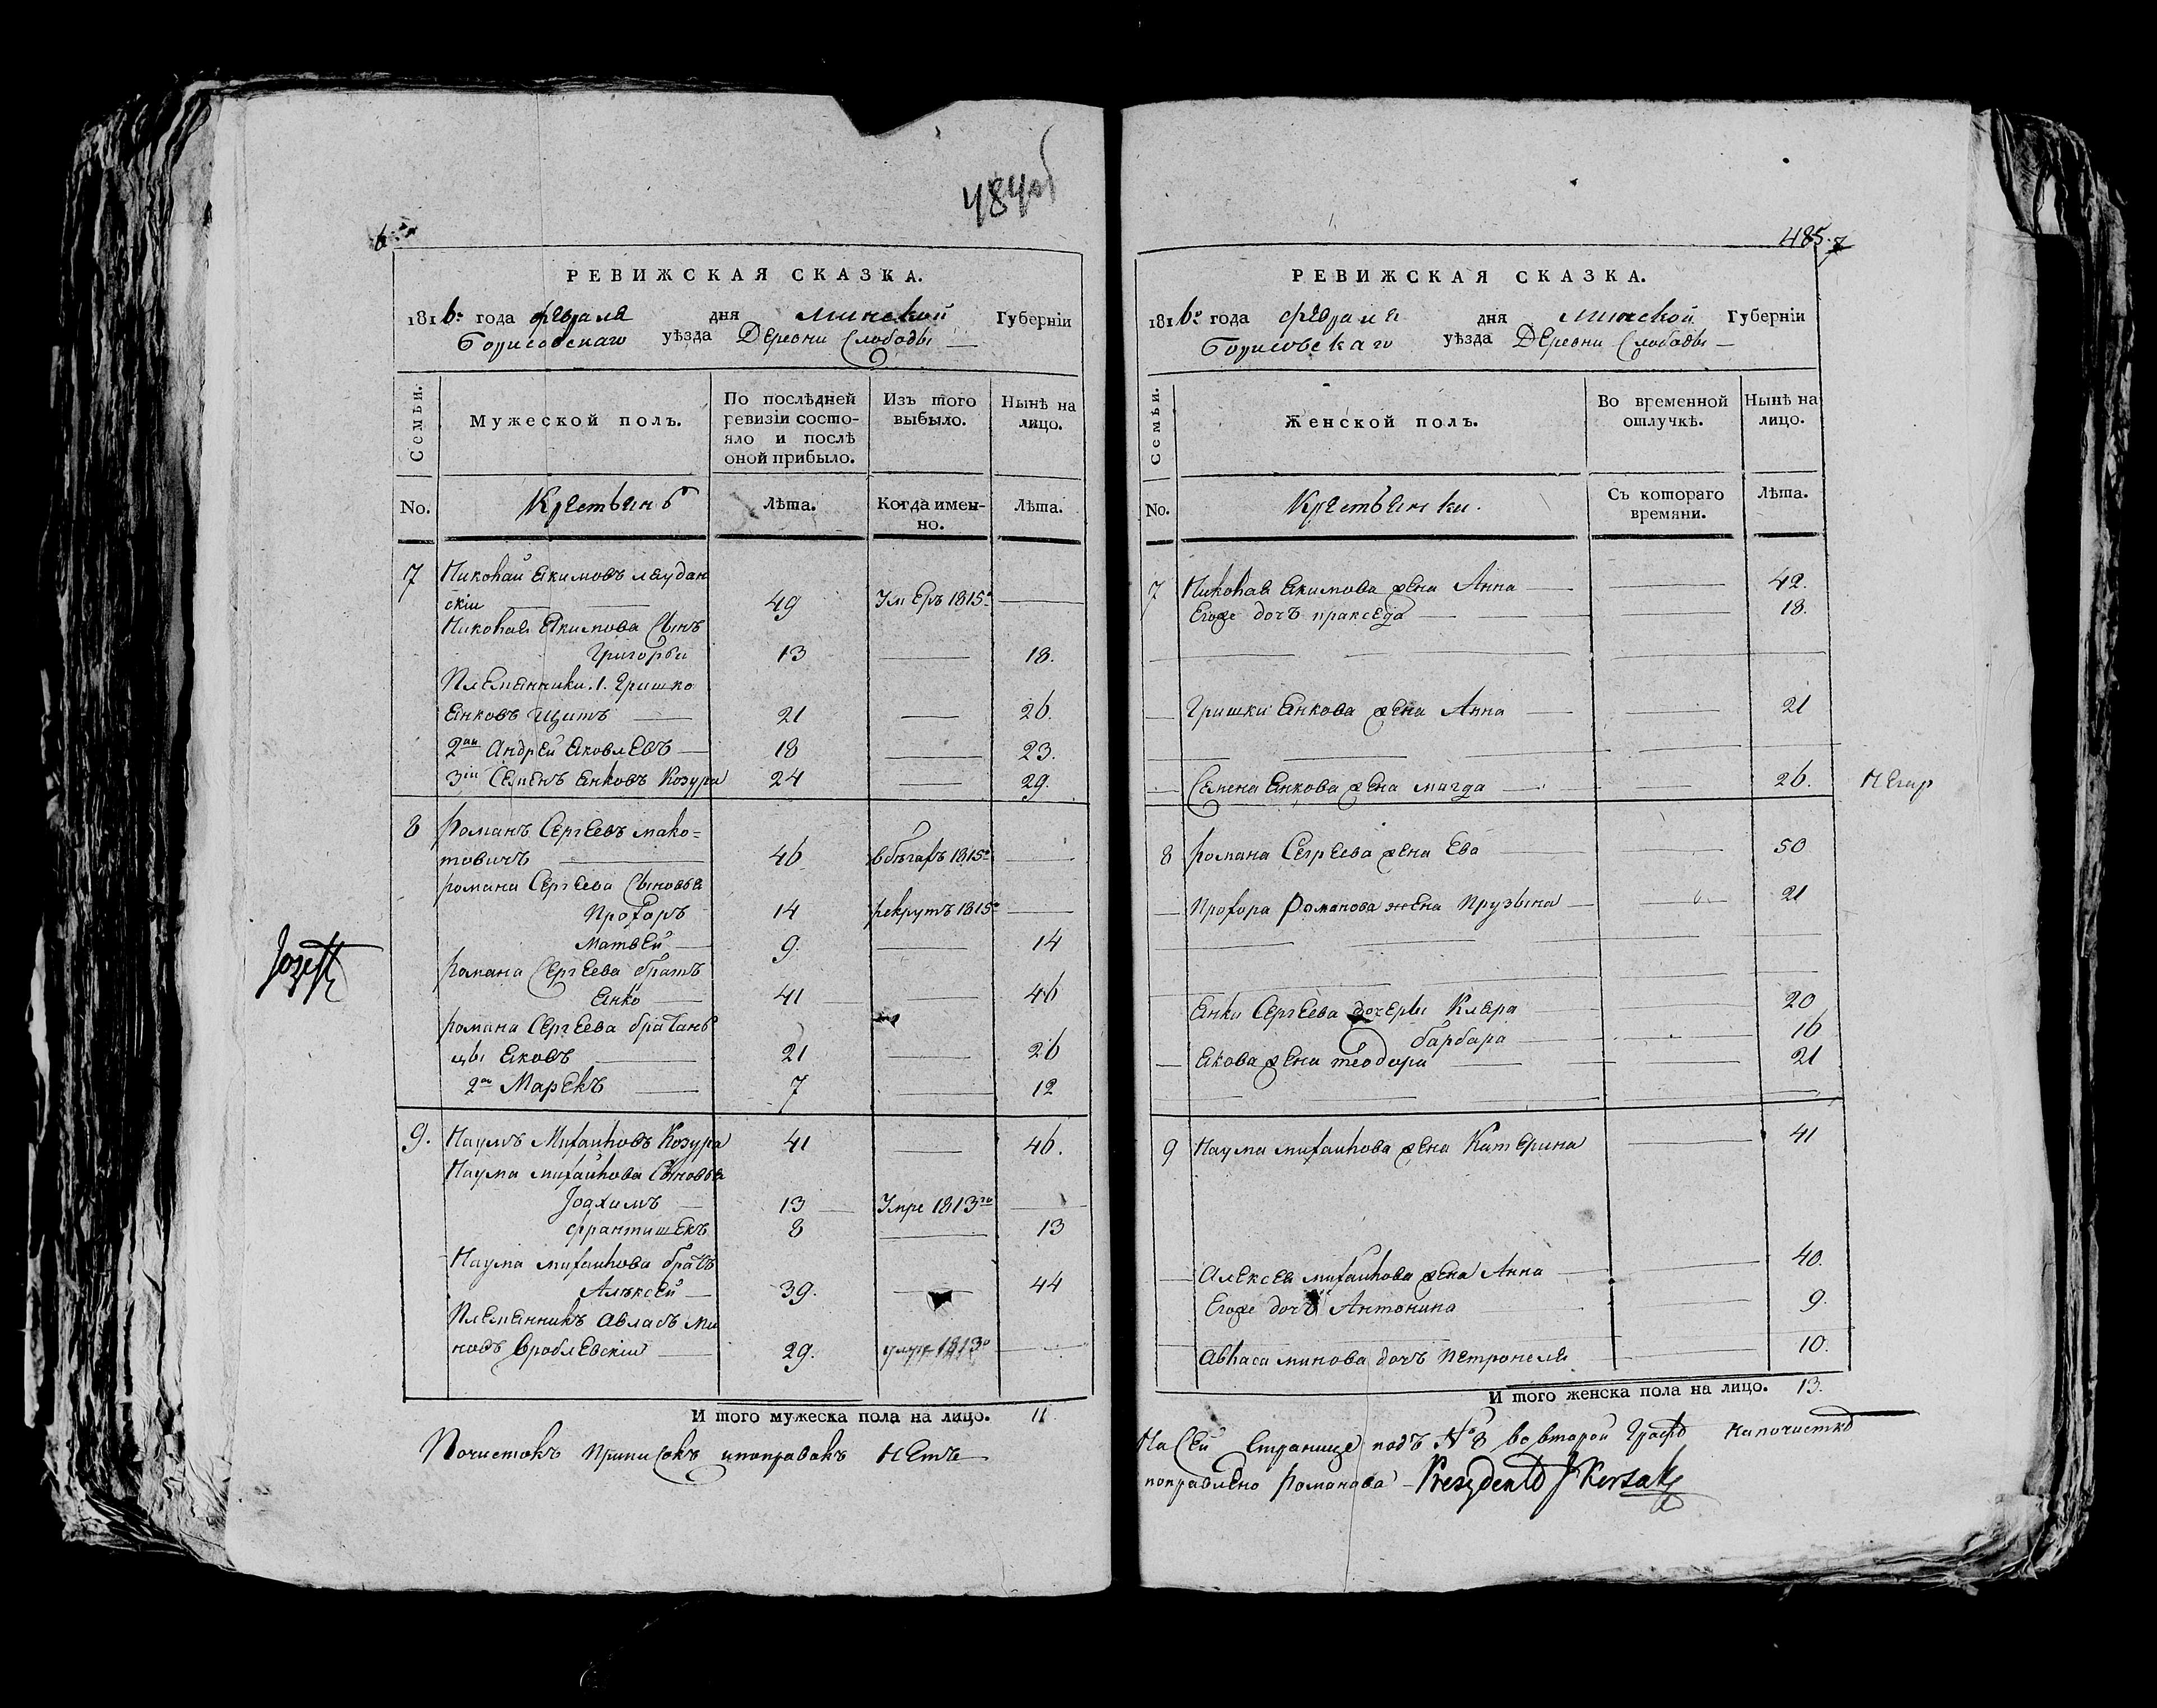 484об
6
РЕВИЖСКАЯ СКАЗКА.
1816го года февраля дня Минской Губерніи
Борисовскаго уѣзда Деревни Слободы
Семьи.
Мужеской полъ.
По послѣдней ревизіи состояло и послѣ оной прибыло.
Изъ того выбыло.
Нынѣ на лицо.
No.
Крестьянъ
Лѣта.
Когда именно.
Лѣта.
7 Николай Якимовъ Лаудан
скій 49 Умеръ 1815го
Николая Якимова Сынъ
Григорьи 13 18.
Племянники. 1. Гришко
Янковъ Щитъ 21 26.
2ай Андрей Яковлевъ 18 23.
3ій Семенъ Янковъ Козура 24 29.
8 Романъ Сергеевъ мако=
товичъ 46 вбѣгахъ 1815го
Романа Сергеева Сыновья
Прохоръ 14 рекрутъ 1815го
Матвей 9. 14
Романа Сергеева братъ
Янко 41 46
Романа Сергеева братан
цы Яковъ 21 26
2ай Марекъ 7 12
9. Наумъ Михайловъ Козура 41 46.
Наума михайлова Сыновья
Іоахимъ 13 Умре 1813го
франтишекъ 8 13
Наума михайлова братъ
Алексей 39. 44
Племянникъ Авласъ Ми
новъ вроблевскій 29. 1813го
И того мужеска пола на лицо. 11
Почистокъ приписокъ ипоправокъ Нетъ
Jozeff
485. 7
РЕВИЖСКАЯ СКАЗКА.
1816го года февраля дня Минской Губерніи
Борисовскаго уѣзда Деревни Слободы
Семьи.
Женской полъ.
Во временной отлучкѣ.
Нынѣ на лицо.
No.
Крестьянки.
Съ котораго времяни.
Лѣта.
7 Николая Якимова жена Анна 42.
Егоже дочъ пракседа 18.
Гришки Янкова жена Анна 21
Семена Янкова жена магда 26.
8 Романа Сергеева жена Ева 50
Прохора Романова жена Прузына 21
Янки Сергеева дочеры Клара 20
барбара 16
Якова жена теодора 21
9 Наума михайлова жена Катерина 41
Алексея михайлова жена Анна 40.
Егоже дочъ Антонина 9.
Авласа минова дочъ Петронеля 10.
И того женска пола на лицо. 13.
На Сей Странице подъ № 8 во второй Графѣ Напочисткѣ
поправлено Романова Prezydent J Korsak